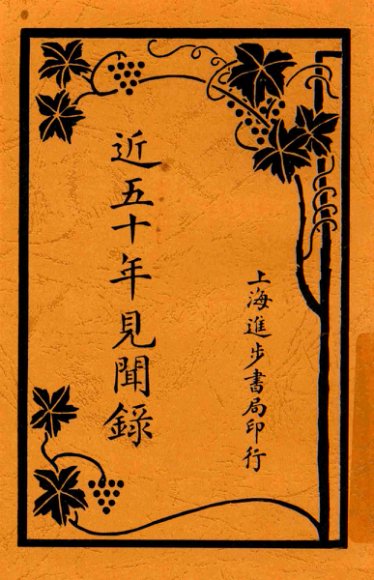 近五十年見聞錄
上海進步書局印行